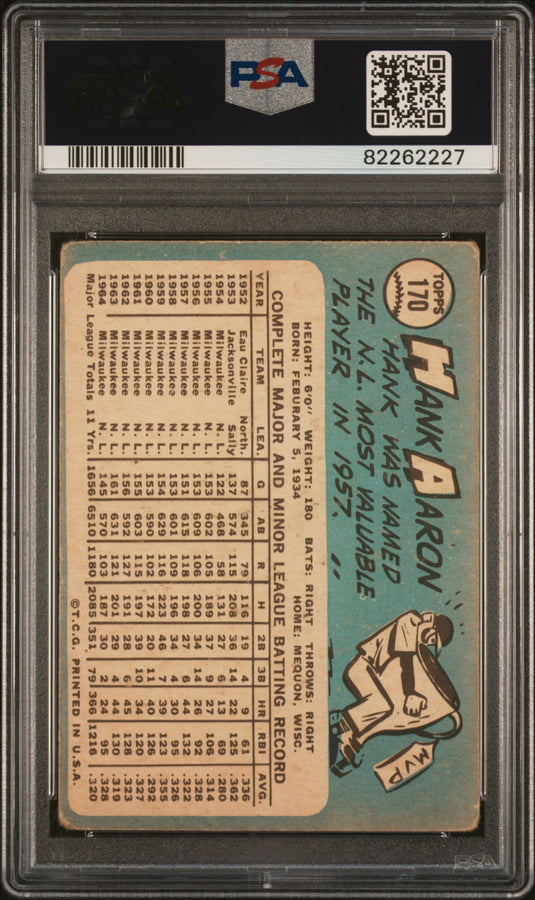 PSA
82262227
TOPPS
170
HANK AARON
HANK WAS NAMED
THE N.L. MOST VALUABLE
PLAYER IN 1957.
MVP
HEIGHT: 6'0" WEIGHT: 180 BATS: RIGHT THROWS: RIGHT
BORN: FEBURARY 5, 1934 HOME: MEQUON, WISC.
COMPLETE MAJOR AND MINOR LEAGUE BATTING RECORD
YEAR TEAM LEA. G AB R H 2B 3B HR RBI AVG.
1952 Eau Claire North. 87 345 79 116 19 4 9 61 .336
1953 Jacksonville Sally 137 574 115 208 36 14 22 125 .362
1954 Milwaukee N. L. 122 468 58 131 27 6 13 69 .280
1955 Milwaukee N. L. 153 602 105 189 37 9 27 106 .314
1956 Milwaukee N. L. 153 609 106 200 34 14 26 92 .328
1957 Milwaukee N. L. 151 615 118 198 27 6 44 132 .322
1958 Milwaukee N. L. 153 601 109 196 34 4 30 95 .326
1959 Milwaukee N. L. 154 629 116 223 46 7 39 123 .355
1960 Milwaukee N. L. 153 590 102 172 20 11 40 126 .292
1961 Milwaukee N. L. 155 603 115 197 39 10 34 120 .327
1962 Milwaukee N. L. 156 592 127 191 28 6 45 128 .323
1963 Milwaukee N. L. 161 631 121 201 29 4 44 130 .319
1964 Milwaukee N. L. 145 570 103 187 30 2 24 95 .328
Major League Totals 11 Yrs. 1656 6510 1180 2085 351 79 366 1216 .320
©T.C.G. PRINTED IN U.S.A.
PSA